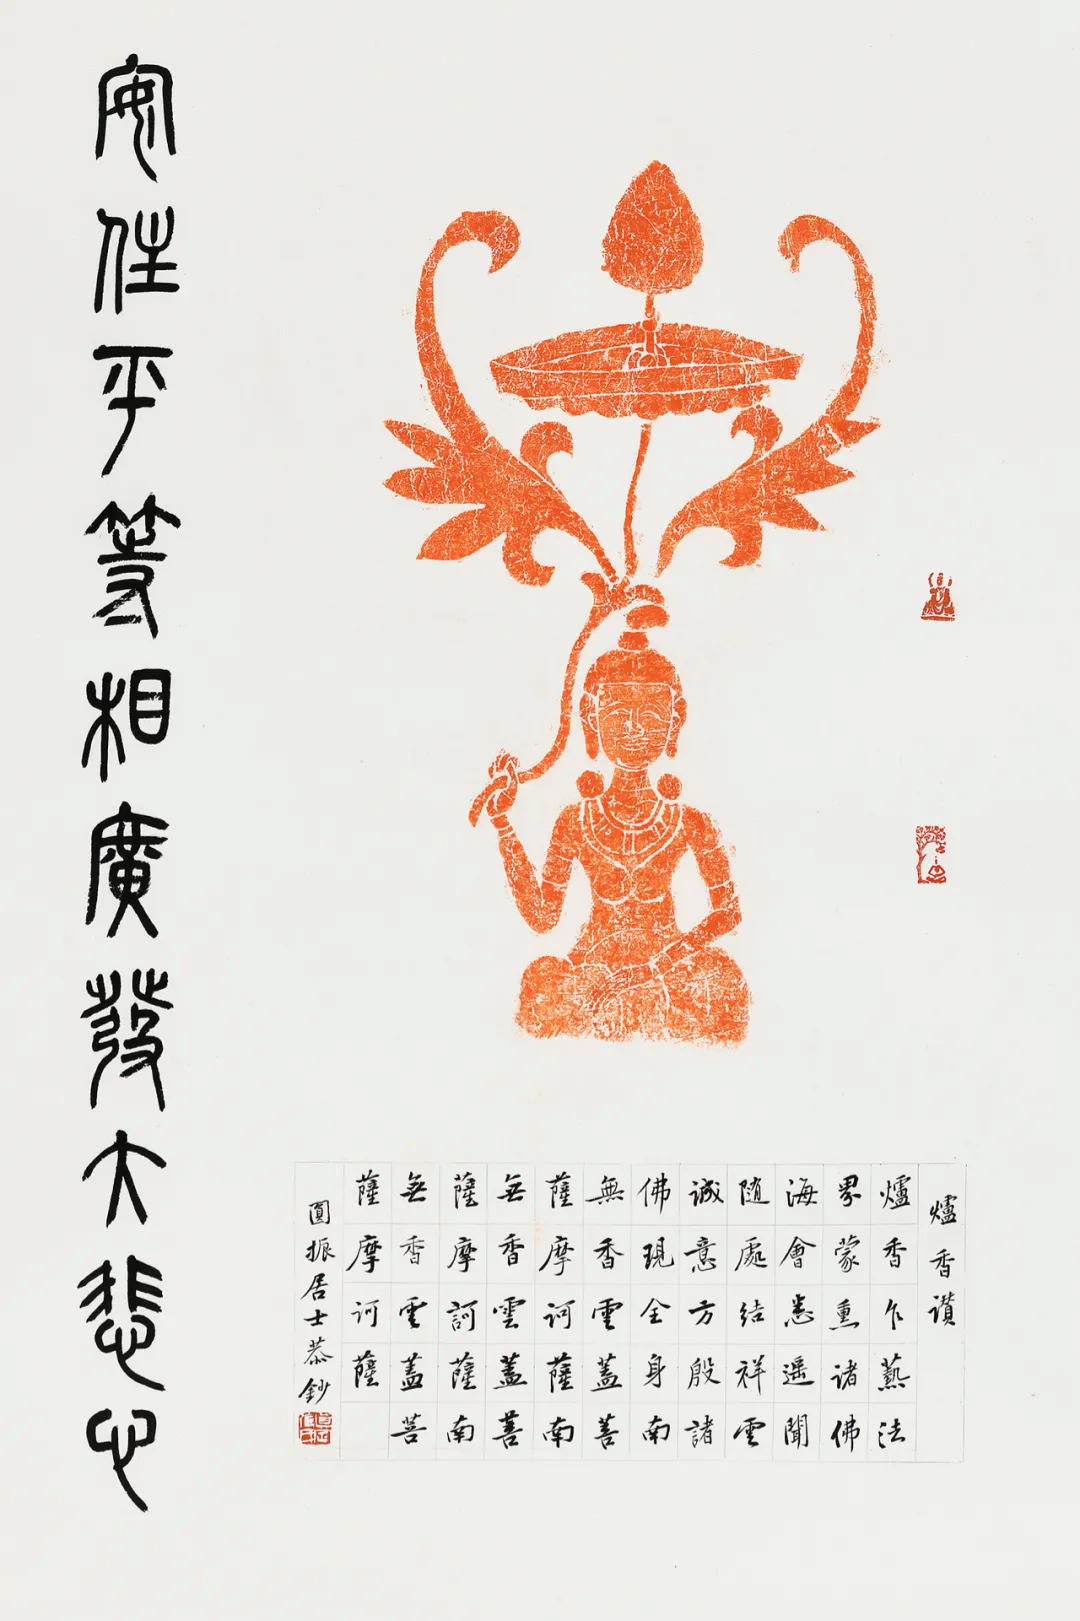 爐香讚
爐香乍爇法
界蒙熏諸佛
海會悉遥聞
随處結祥雲
誠意方殷諸
佛現全身南
無香雲蓋菩
薩摩訶薩南
无香雲蓋菩
薩摩訶薩南
无香雲蓋菩
薩摩訶薩
圓振居士恭鈔
安住平等相廣發大悲心